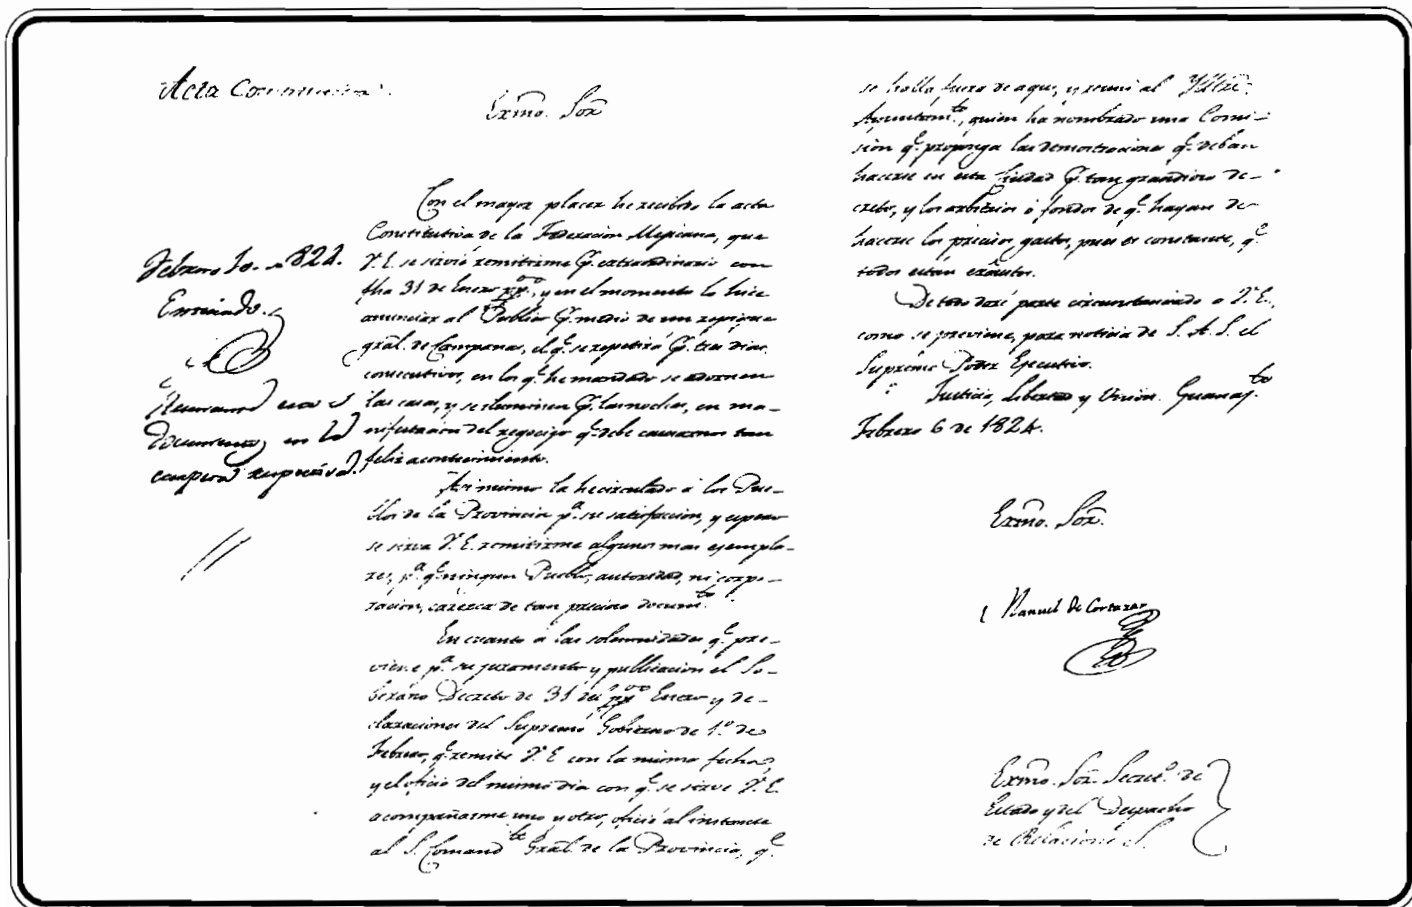 Acta Constitutiva
Exmo. Sor.
Febrero 10. de 1824.
Enterado.
Reunanse esta y los
documentos en la
carpeta respectiva.
Con el mayor placer he recibido la acta
Constitutiva de la Federacion Mexicana, que
V. E. se sirvió remitirme pr. extraordinario con
fha 31 de Enero ppo., y en el momento lo hice
anunciar al Publico pr. medio de un repique
gral. de Campanas, el qe. se repetirá pr. tres dias
consecutivos, en los qe. he mandado se adornen
las casas, y se iluminen pr. las noches, en ma-
nifestacion del regocijo qe. debe causarnos tan
feliz acontecimiento.
Asi mismo la he circulado á los Pue-
blos de la Provincia pa. su satisfacion, y espero
se sirva V. E. remitirme algunos mas exempla-
res, pa. qe. ningun Pueblo, autoridad, ni corpo-
racion, carezca de tan precioso documto.
En cuanto á las solemnidades qe. pre-
viene pa. su juramento y publicacion el So-
berano Decreto de 31 del ppo. Enero y de-
claraciones del Supremo Gobierno de 1o. de
Febrero, qe. remite V. E. con la misma fecha,
y el oficio del mismo dia con qe. se sirve V. E.
acompañarme uno y otro, oficié al instante
al S. Comandte. Gral. de la Provincia, qe.
se halla fuera de aqui, y reuni al Yltre.
Ayuntamto., quien ha nombrado una Comi-
sion qe. proponga las demostraciones qe. deban
hacerse en esta Ciudad pr. tan grandioso de-
creto, y los arbitrios ó fondos de qe. hayan de
hacerse los precisos gastos, pues es constante, qe.
todos estan exâustos.
De todo daré parte circunstanciado a V. E.
como se previene, para noticia de S. A. S. el
Supremo Poder Ejecutivo.
Justicia, Libertad y Union. Guanajto.
Febrero 6 de 1824.
Exmo. Sor.
Manuel de Cortazar
Exmo. Sor. Secreto. de
Estado y del Despacho
de Relaciones